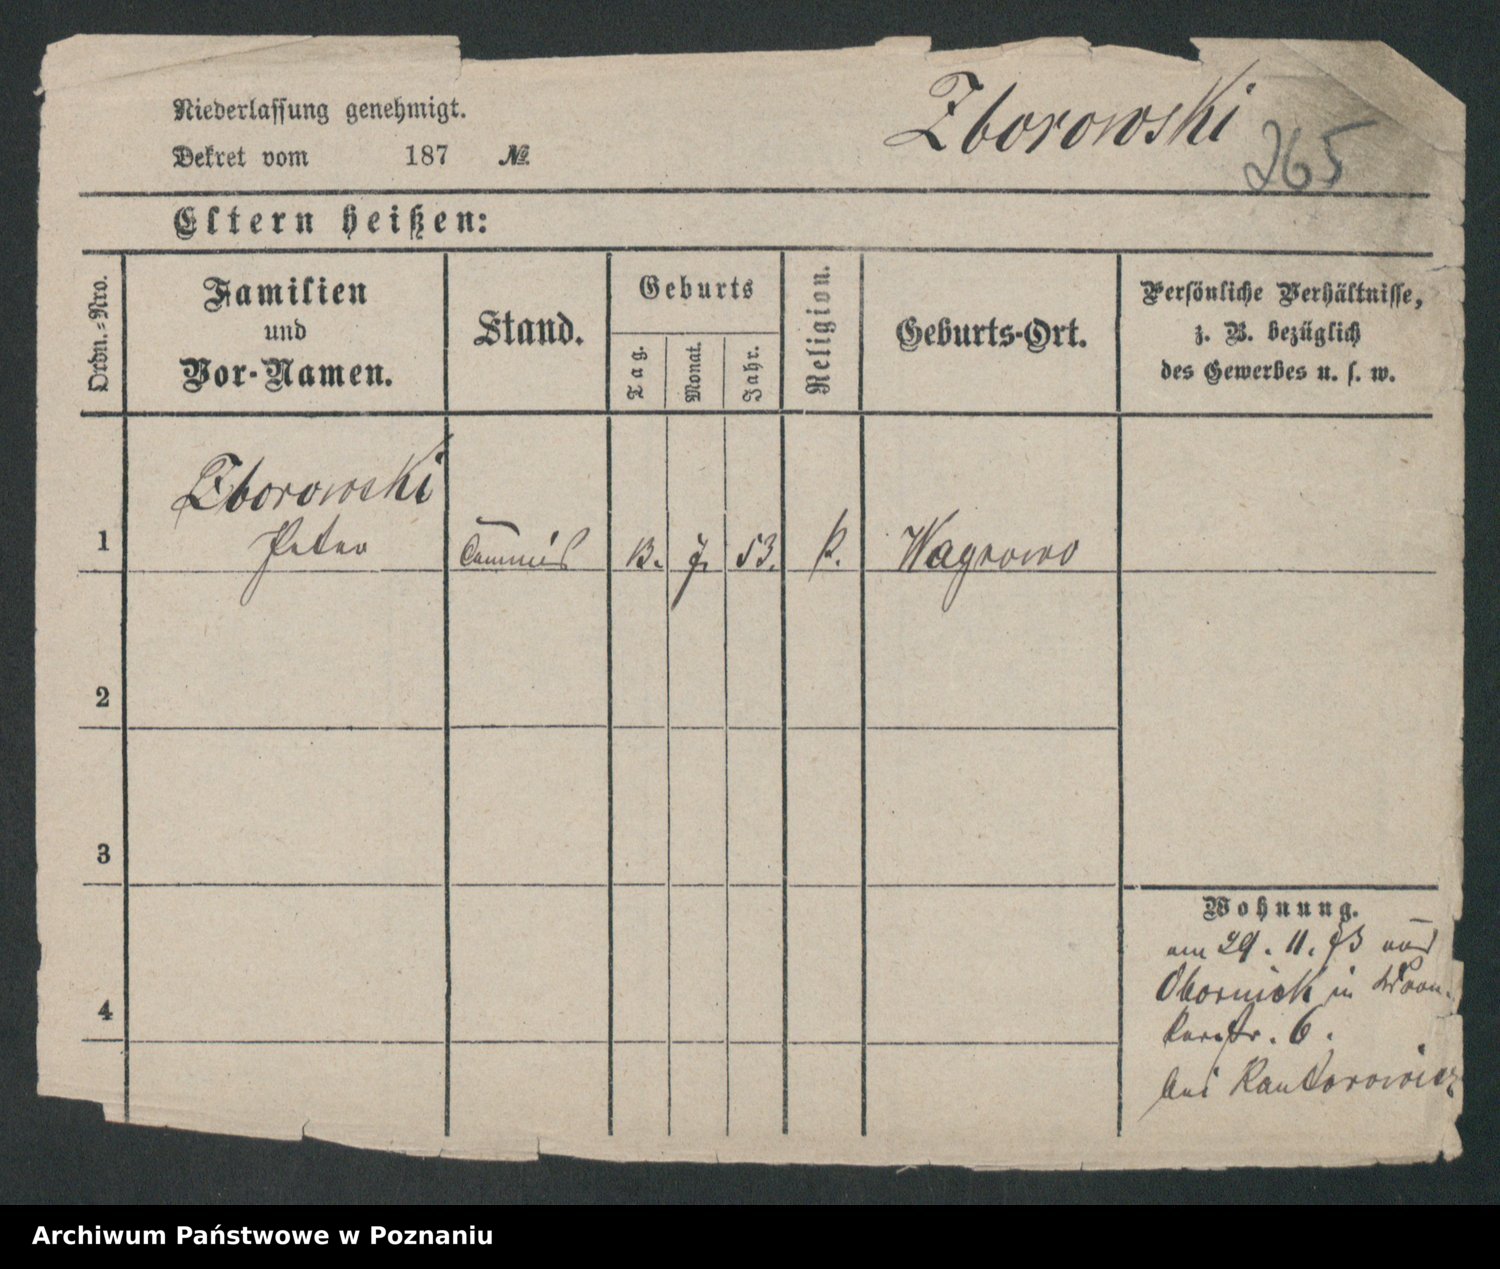 Niederlassung genehmigt.
Dekret vom 187 №
Zborowski
265
Eltern heißen:
Ordn.-Nro.
Familien
und
Vor-Namen.
Stand.
Geburts
Tag.
Monat.
Jahr.
Religion.
Geburts-Ort.
Persönliche Verhältnisse,
z. B. bezüglich
des Gewerbes u. s. w.
Zborowski
1 Peter Commis 13. 7. 53. k. Wagrowo
2
3
4
Wohnung.
am 29. 11. 73 aus
Obornick in Wron-
kerstr. 6.
bei Kantorowicz
Archiwum Państwowe w Poznaniu